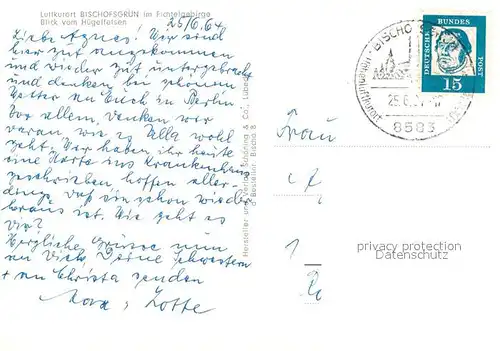 Luftkurort BISCHOFSGRÜN im Fichtelgebirge
Blick vom Hügelfelsen
25/6.64
Liebe Agnes! Wir sind
hier gut angekommen
und wieder gut untergebracht
und denken bei schönem
Wetter an Euch in Berlin.
Vor allem, denken wir
daran wie es Ella wohl
geht. Wir haben ihr heute
eine Karte ins Krankenhaus
geschrieben, hoffen aller-
dings, daß sie schon wieder
heraus ist. Wie geht es
Dir?
Herzliche Grüsse nun
an Dich, Deine Schwestern
+ an Christa senden
Lotte
Hersteller und Verlag Schöning & Co., Lübeck
Bestellnr. Bischö 8
BISCHO
Höhenluftkurort
25.6.
8583
DEUTSCHE BUNDES POST
15
Frau
privacy protection
Datenschutz